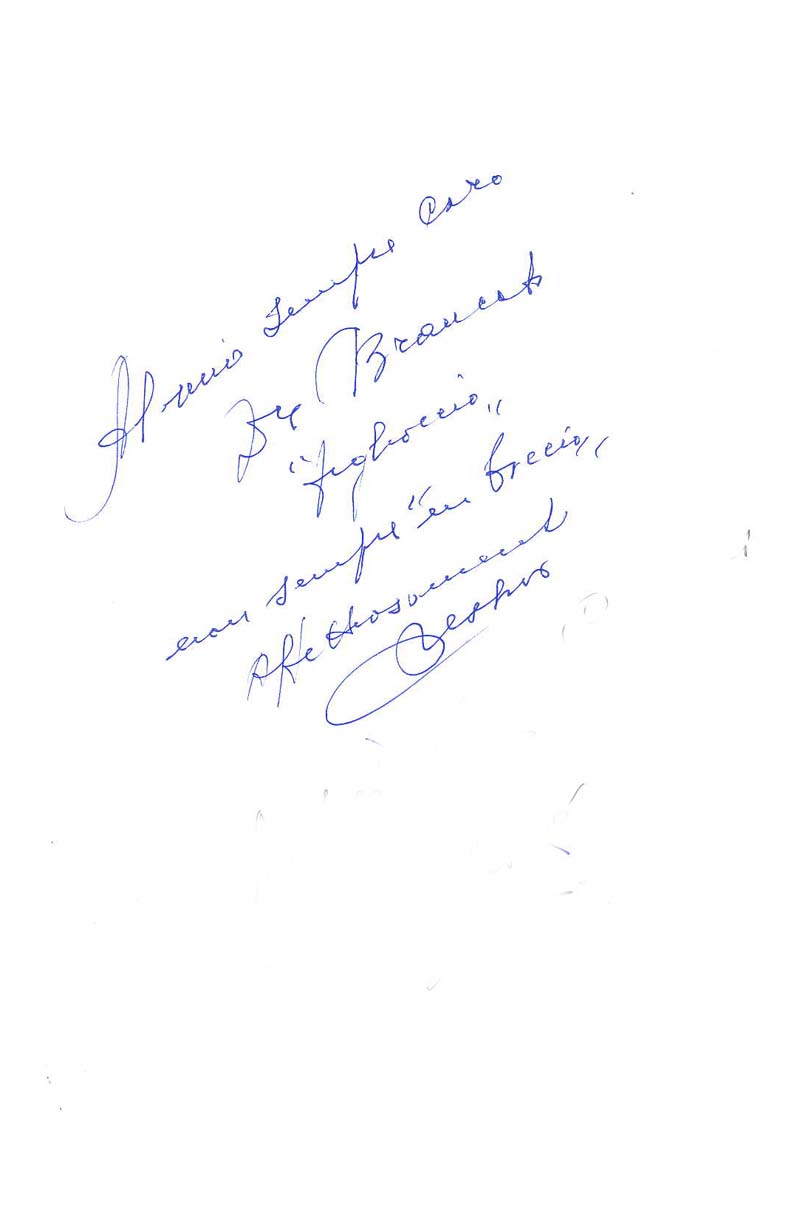 Al mio sempre Caro
Dr Brancat
"figlioccio„
non sempre "in braccio„
Affettuosament